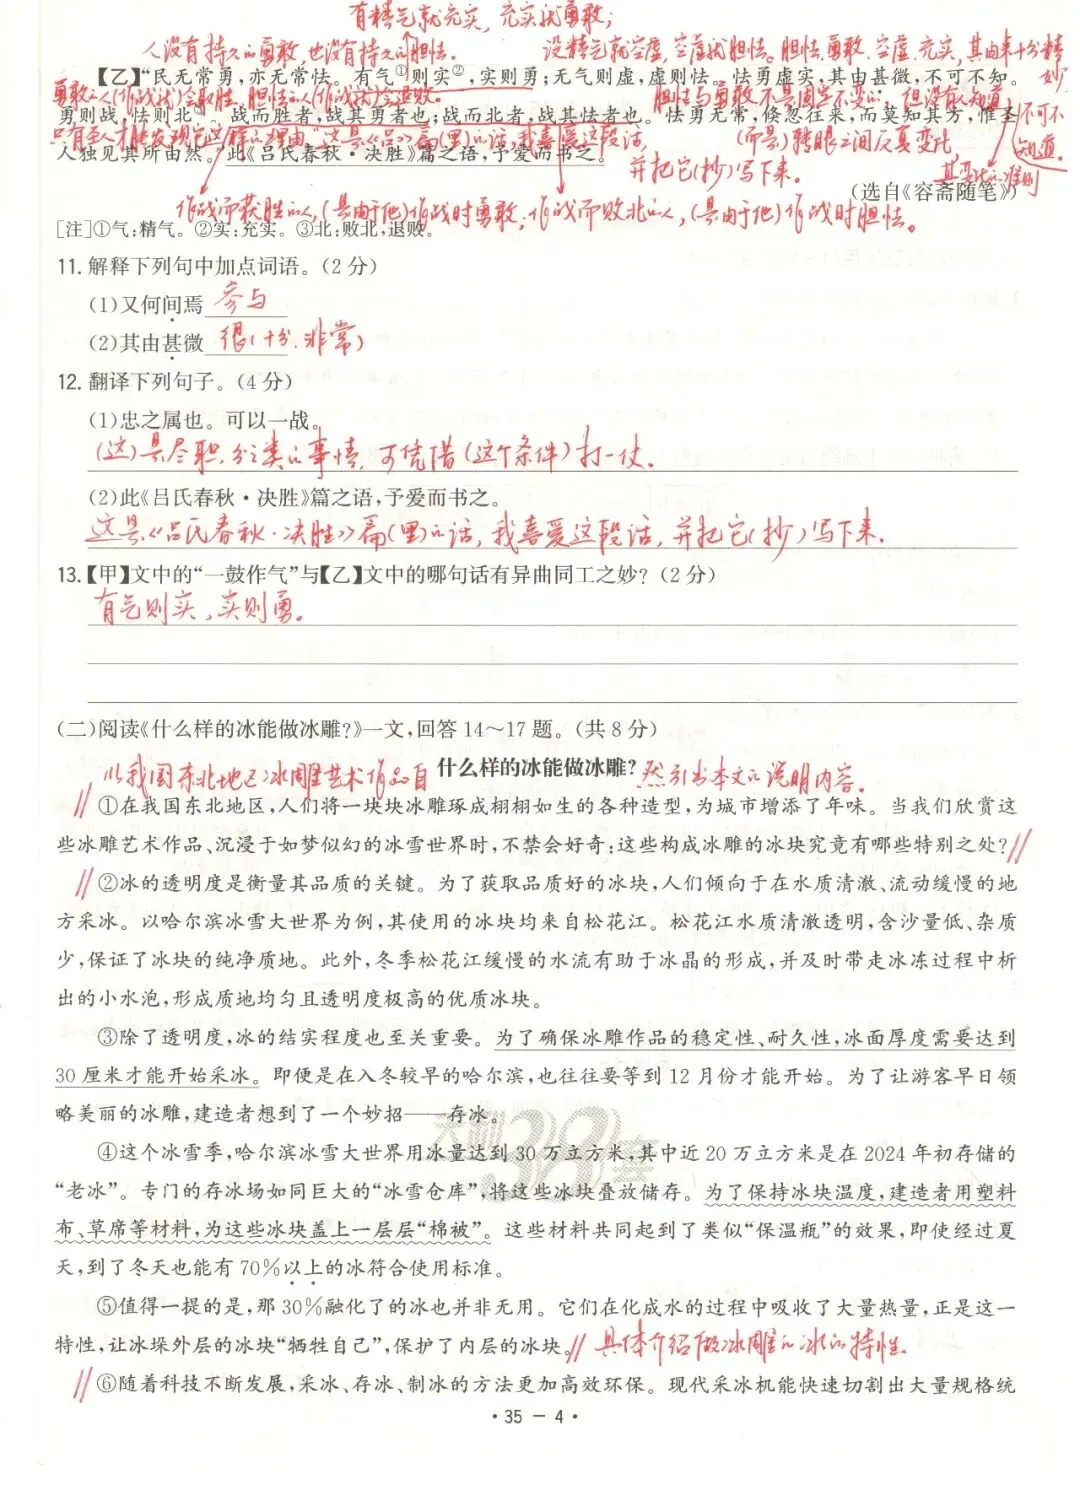 有精气就充实，充实就勇敢；
人没有持久的勇敢，也没有持久的胆怯。 没精气就空虚，空虚就胆怯。胆怯、勇敢、空虚、充实，其由来十分精妙，
【乙】“民无常勇，亦无常怯。有气①则实②，实则勇；无气则虚，虚则怯。怯勇虚实，其由甚微，不可不知。
勇敢的人(作战就)会取胜，胆怯的人(作战就)会逃败。 胆怯与勇敢不是固定不变的， 但没有人知道
不可不知道。
勇则战，怯则北③。战而胜者，战其勇者也；战而北者，战其怯者也。怯勇无常，倏忽往来，而莫知其方，惟圣
这是《吕》篇(里)的话，我喜爱这段话， (而是)转眼之间反复变化
人独见其所由然。”此《吕氏春秋·决胜》篇之语，予爱而书之。
并把它(抄)写下来。 其变化的准则
（选自《容斋随笔》）
作战而获胜的人，(是由于他)作战时勇敢，作战而败北的人，(是由于他)作战时胆怯。
[注]①气：精气。②实：充实。③北：败北，退败。
11. 解释下列句中加点词语。（2 分）
(1)又何间焉 参与
(2)其由甚微 很(十分、非常)
12. 翻译下列句子。（4 分）
(1)忠之属也。可以一战。
(这)是尽职分之类的事情，可凭借(这个条件)打一仗。
(2)此《吕氏春秋·决胜》篇之语，予爱而书之。
这是《吕氏春秋·决胜》篇(里)的话，我喜爱这段话，并把它(抄)写下来。
13.【甲】文中的“一鼓作气”与【乙】文中的哪句话有异曲同工之妙？（2 分）
有气则实，实则勇。
(二)阅读《什么样的冰能做冰雕？》一文，回答 14～17 题。（共 8 分）
什么样的冰能做冰雕？
以我国东北地区冰雕艺术作品自然引出本文的说明内容。
①在我国东北地区，人们将一块块冰雕琢成栩栩如生的各种造型，为城市增添了年味。当我们欣赏这
些冰雕艺术作品、沉浸于如梦似幻的冰雪世界时，不禁会好奇：这些构成冰雕的冰块究竟有哪些特别之处？
②冰的透明度是衡量其品质的关键。为了获取品质好的冰块，人们倾向于在水质清澈、流动缓慢的地
方采冰。以哈尔滨冰雪大世界为例，其使用的冰块均来自松花江。松花江水质清澈透明，含沙量低、杂质
少，保证了冰块的纯净质地。此外，冬季松花江缓慢的水流有助于冰晶的形成，并及时带走冰冻过程中析
出的小水泡，形成质地均匀且透明度极高的优质冰块。
③除了透明度，冰的结实程度也至关重要。为了确保冰雕作品的稳定性、耐久性，冰面厚度需要达到
30 厘米才能开始采冰。即便是在入冬较早的哈尔滨，也往往要等到 12 月份才能开始。为了让游客早日领
略美丽的冰雕，建造者想到了一个妙招——存冰。
④这个冰雪季，哈尔滨冰雪大世界用冰量达到 30 万立方米，其中近 20 万立方米是在 2024 年初存储的
“老冰”。专门的存冰场如同巨大的“冰雪仓库”，将这些冰块叠放储存。为了保持冰块温度，建造者用塑料
布、草席等材料，为这些冰块盖上一层层“棉被”。这些材料共同起到了类似“保温瓶”的效果，即使经过夏
天，到了冬天也能有 70%以上的冰符合使用标准。
⑤值得一提的是，那 30%融化了的冰也并非无用。它们在化成水的过程中吸收了大量热量，正是这一
特性，让冰垛外层的冰块“牺牲自己”，保护了内层的冰块。 具体介绍做冰雕的冰的特性。
⑥随着科技不断发展，采冰、存冰、制冰的方法更加高效环保。现代采冰机能快速切割出大量规格统
• 35 － 4 •